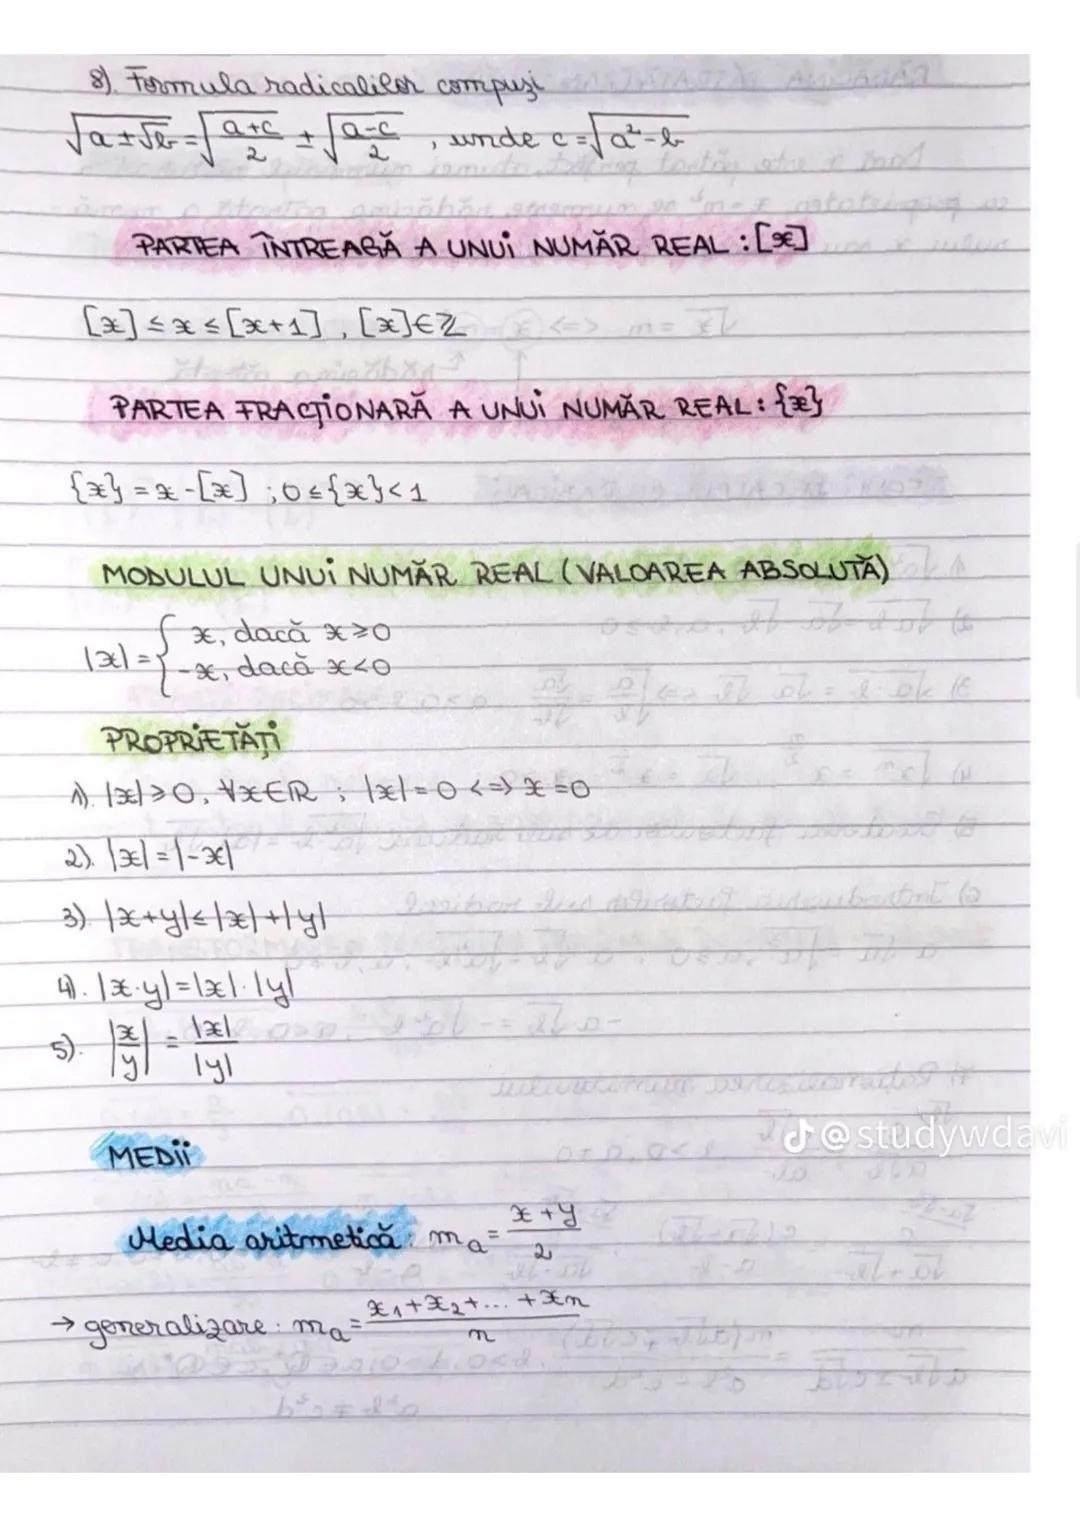 8). Formula radicalilor compuși
√(a±√b) = √((a+c)/2) ± √((a-c)/2) , unde c=√(a²-b)
PARTEA ÎNTREAGĂ A UNUI NUMĂR REAL : [x]
[x] ≤ x ≤ [x+1] , [x]∈ℤ
PARTEA FRACȚIONARĂ A UNUI NUMĂR REAL : {x}
{x} = x - [x] ; 0 ≤ {x} < 1
MODULUL UNUI NUMĂR REAL (VALOAREA ABSOLUTĂ)
|x| = { x, dacă x ≥ 0
-x, dacă x < 0
PROPRIETĂȚI
1). |x| ≥ 0, ∀x∈ℝ ; |x| = 0 <=> x = 0
2). |x| = |-x|
3). |x+y| ≤ |x| + |y|
4). |x·y| = |x|·|y|
5). |x/y| = |x|/|y|
@studywdavi
MEDII
Media aritmetică : mₐ = (x+y)/2
→ generalizare : mₐ = (x₁+x₂+...+xn)/n